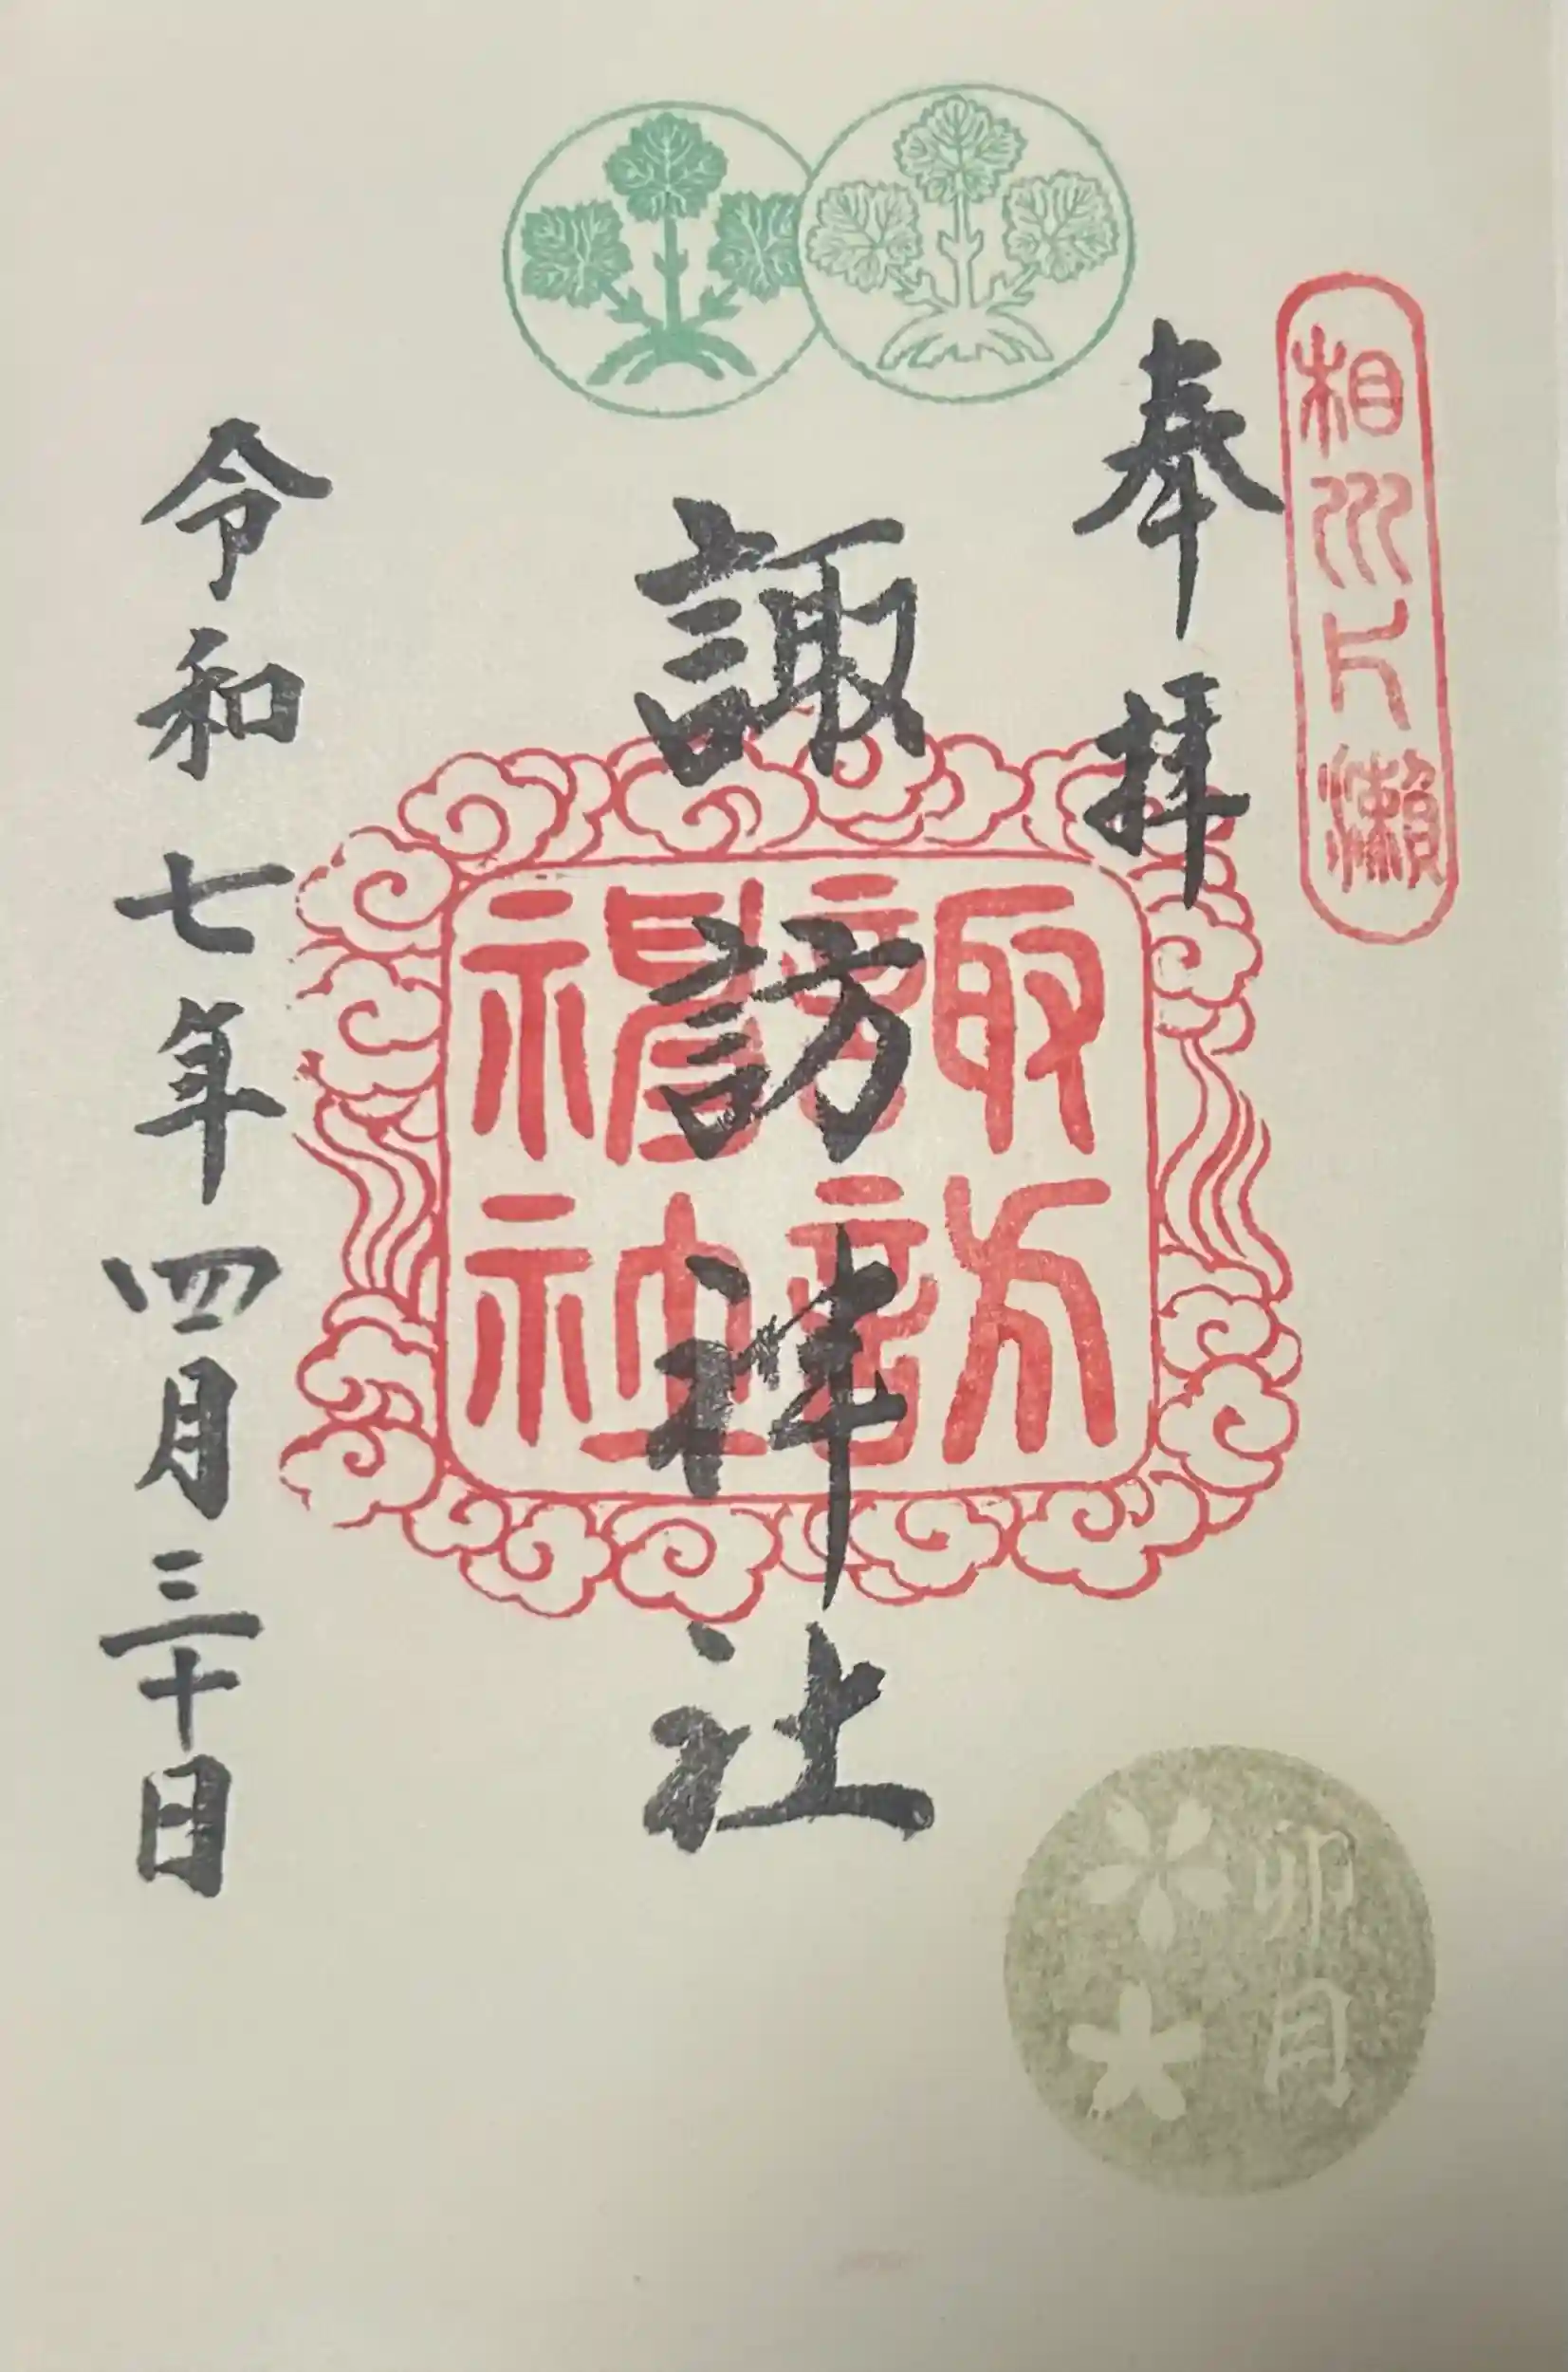 相州片瀬
奉拝
諏訪神社
諏訪神社
令和七年四月三十日
卯月